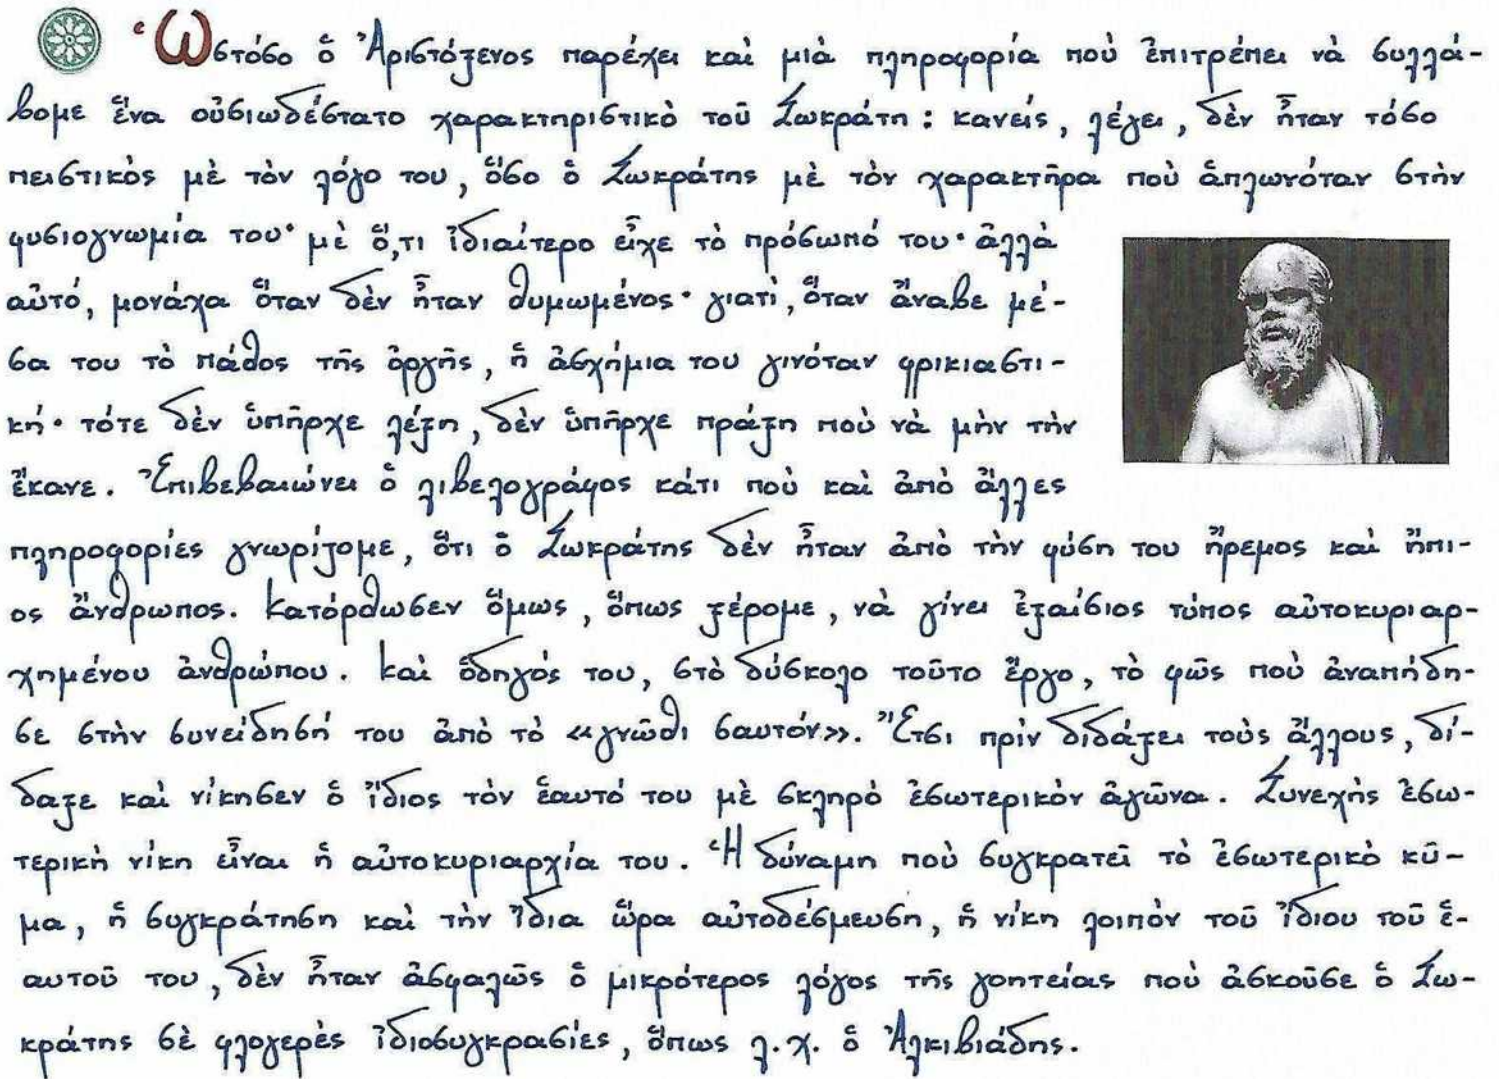 Ὡστόσο ὁ Ἀριστόξενος παρέχει καὶ μιὰ πληροφορία ποὺ ἐπιτρέπει νὰ συλλά-
βομε ἕνα οὐσιωδέστατο χαρακτηριστικὸ τοῦ Σωκράτη : κανείς, λέγει, δὲν ἦταν τόσο
πειστικὸς μὲ τὸν λόγο του, ὅσο ὁ Σωκράτης μὲ τὸν χαρακτῆρα ποὺ ἁπλωνόταν στὴν
φυσιογνωμία του· μὲ ὅ,τι ἰδιαίτερο εἶχε τὸ πρόσωπό του· ἀλλὰ
αὐτό, μονάχα ὅταν δὲν ἦταν θυμωμένος· γιατὶ, ὅταν ἄναβε μέ-
σα του τὸ πάθος τῆς ὀργῆς, ἡ ἀσχήμια του γινόταν φρικιαστι-
κή· τότε δὲν ὑπῆρχε λέξη, δὲν ὑπῆρχε πράξη ποὺ νὰ μὴν τὴν
ἔκανε. Ἐπιβεβαιώνει ὁ λιβελογράφος κάτι ποὺ καὶ ἀπὸ ἄλλες
πληροφορίες γνωρίζομε, ὅτι ὁ Σωκράτης δὲν ἦταν ἀπὸ τὴν φύση του ἤρεμος καὶ ἤπι-
ος ἄνθρωπος. Κατόρθωσεν ὅμως, ὅπως ξέρομε, νὰ γίνει ἐξαίσιος τύπος αὐτοκυριαρ-
χημένου ἀνθρώπου. Καὶ ὁδηγός του, στὸ δύσκολο τοῦτο ἔργο, τὸ φῶς ποὺ ἀναπήδη-
σε στὴν συνείδησή του ἀπὸ τὸ «γνῶθι σαυτόν». Ἔτσι πρὶν διδάξει τοὺς ἄλλους, δί-
δαξε καὶ νίκησεν ὁ ἴδιος τὸν ἑαυτό του μὲ σκληρὸ ἐσωτερικὸν ἀγῶνα. Συνεχὴς ἐσω-
τερικὴ νίκη εἶναι ἡ αὐτοκυριαρχία του. Ἡ δύναμη ποὺ συγκρατεῖ τὸ ἐσωτερικὸ κῦ-
μα, ἡ συγκράτηση καὶ τὴν ἴδια ὥρα αὐτοδέσμευση, ἡ νίκη λοιπὸν τοῦ ἴδιου τοῦ ἑ-
αυτοῦ του, δὲν ἦταν ἀσφαλῶς ὁ μικρότερος λόγος τῆς γοητείας ποὺ ἀσκοῦσε ὁ Σω-
κράτης σὲ φλογερὲς ἰδιοσυγκρασίες, ὅπως λ.χ. ὁ Ἀλκιβιάδης.